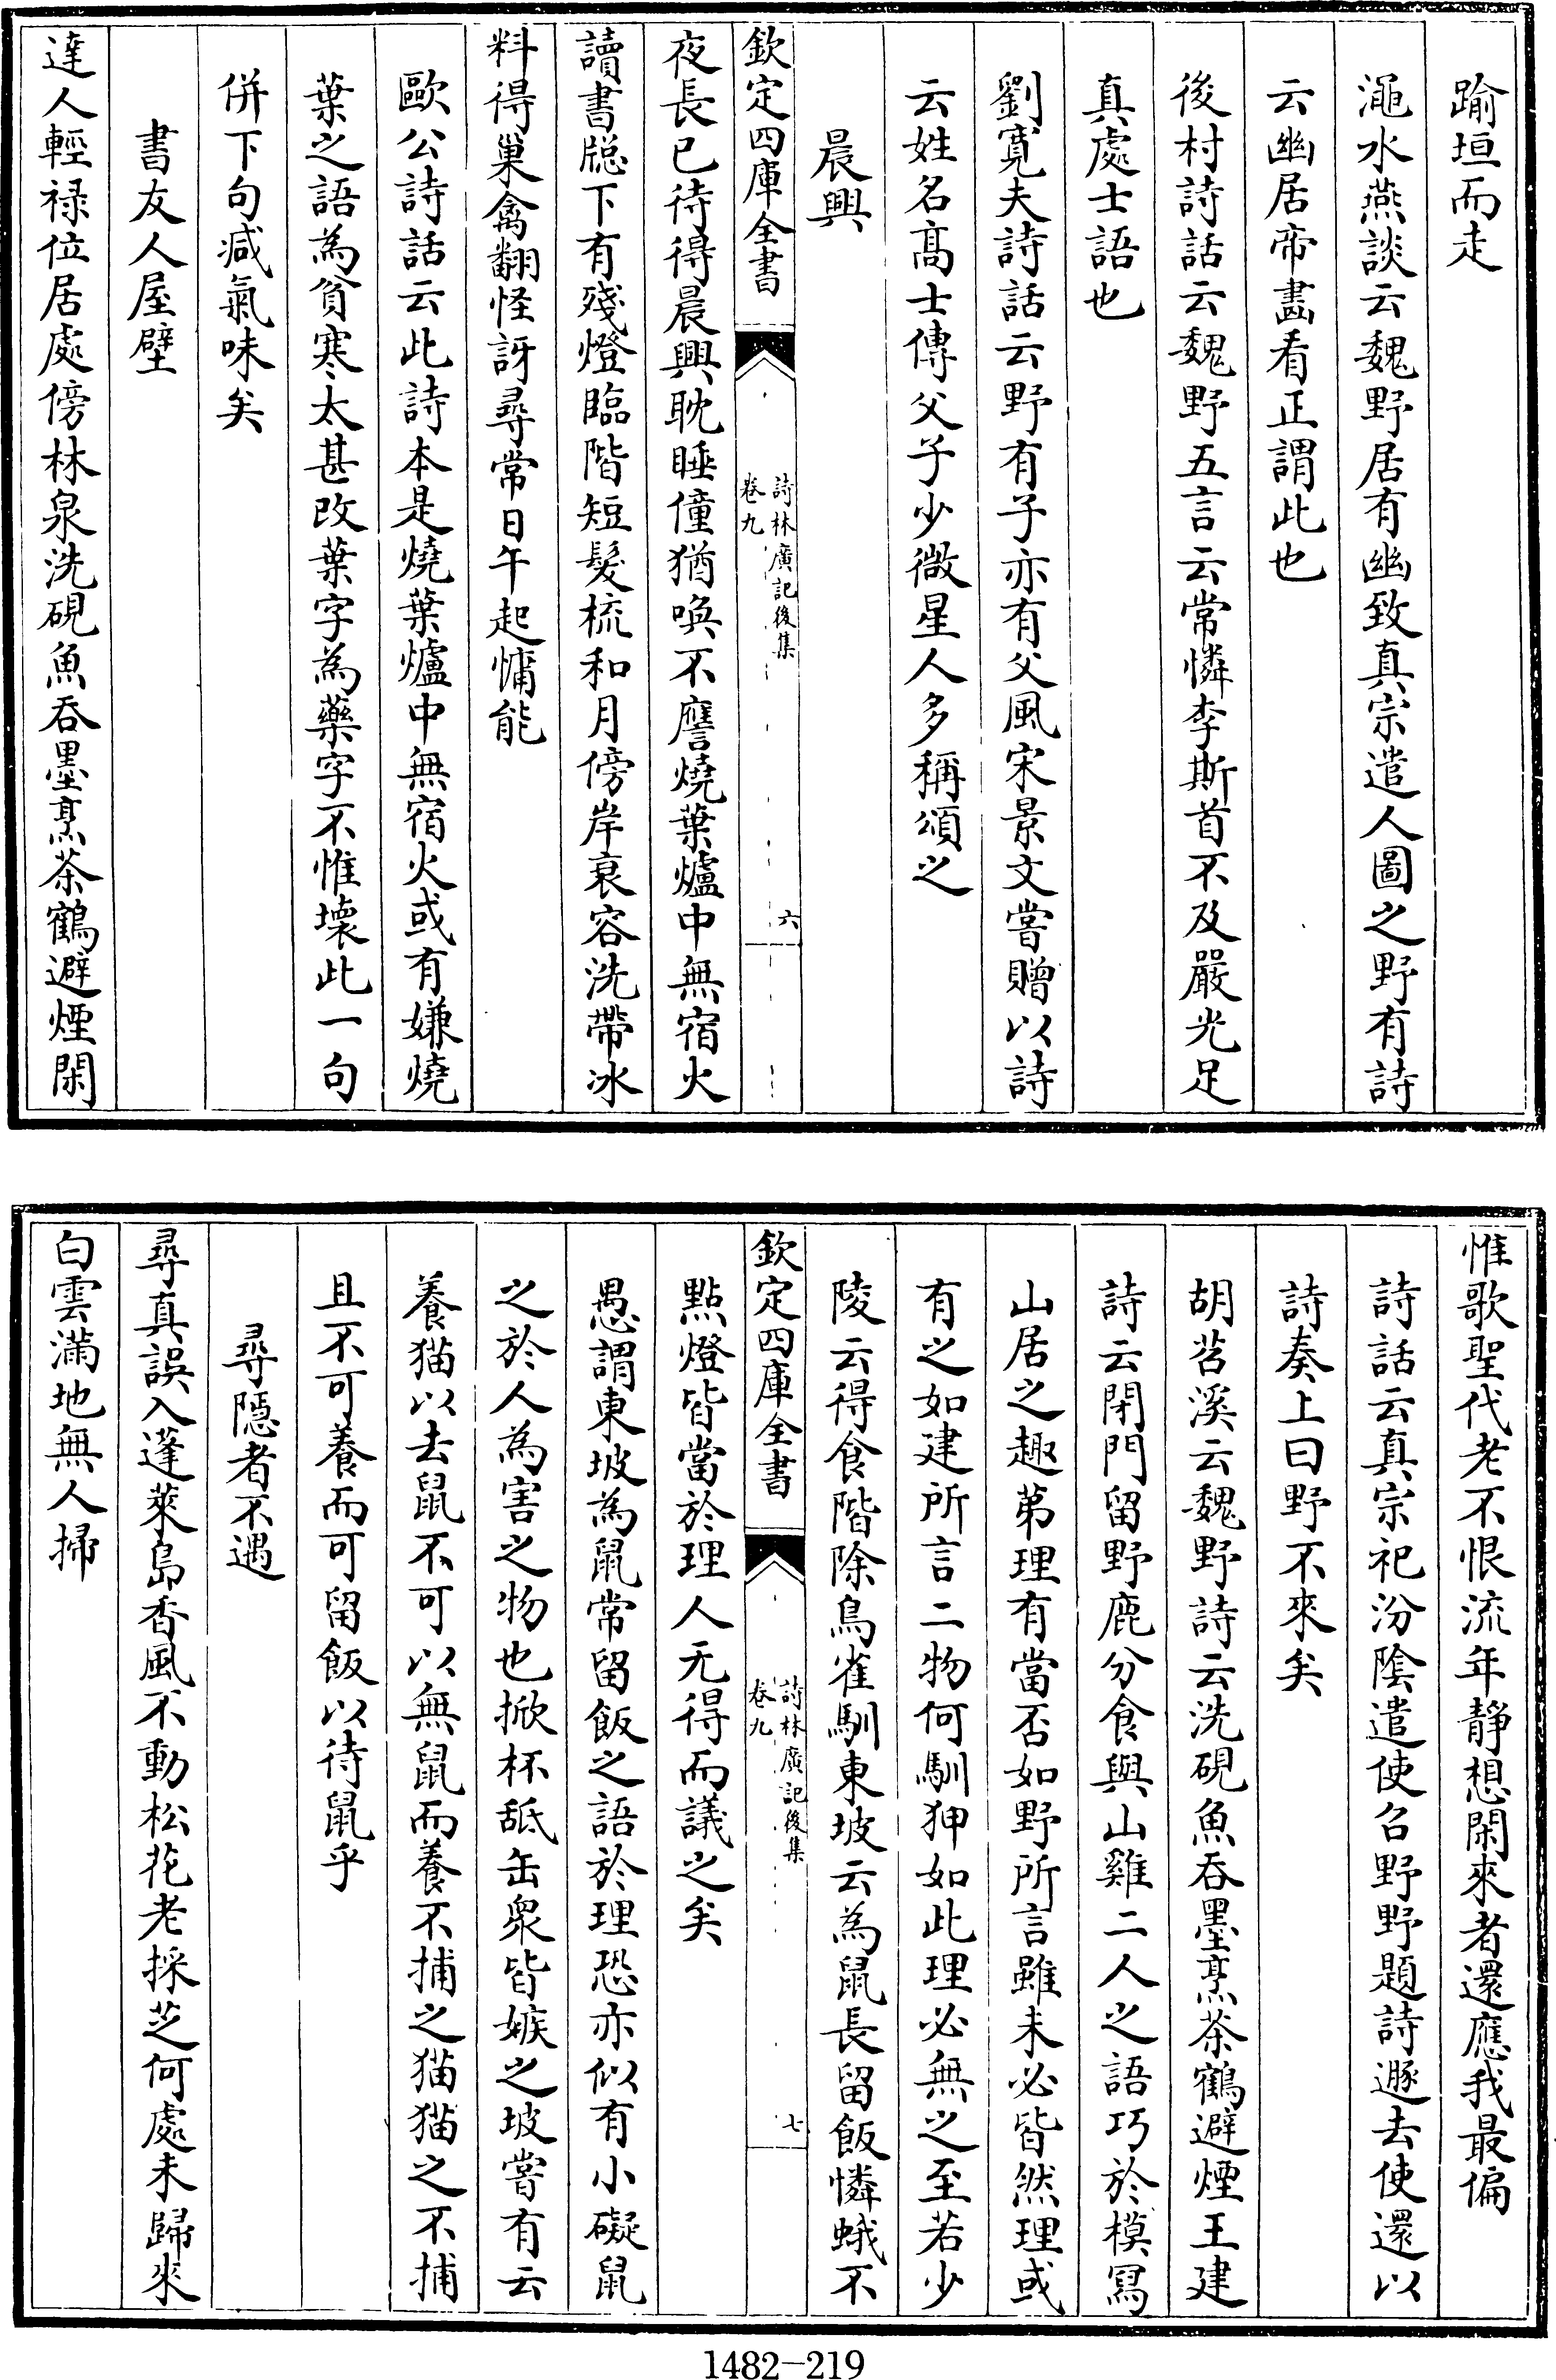 踰垣而走
澠水燕談云魏野居有幽致真宗遣人圖之野有詩
云幽居帝畫看正謂此也
後村詩話云魏野五言云常憐李斯首不及嚴光足
真處士語也
劉寛夫詩話云野有子亦有父風宋景文嘗贈以詩
云姓名髙士傳父子少微星人多稱頌之
晨興
欽定四庫全書
詩林廣記後集
卷九
六
夜長已待得晨興耽睡僮猶喚不譍燒葉爐中無宿火
讀書牕下有殘燈臨階短髮梳和月傍岸衰容洗帶冰
料得巢禽翻怪訝尋常日午起慵能
歐公詩話云此詩本是燒葉爐中無宿火或有嫌燒
葉之語為貧寒太甚改葉字為藥字不惟壊此一句
併下句減氣味矣
書友人屋壁
達人輕禄位居處傍林泉洗硯魚吞墨烹茶鶴避煙閑
惟歌聖代老不恨流年靜想閑來者還應我最偏
詩話云真宗祀汾隂遣使召野野題詩遯去使還以
詩奏上曰野不來矣
胡苕溪云魏野詩云洗硯魚吞墨烹茶鶴避煙王建
詩云閉門留野鹿分食與山雞二人之語巧於模冩
山居之趣第理有當否如野所言雖未必皆然理或
有之如建所言二物何馴狎如此理必無之至若少
陵云得食階除鳥雀馴東坡云為鼠長留飯憐蛾不
欽定四庫全書
詩林廣記後集
卷九
七
點燈皆當於理人无得而議之矣
愚謂東坡為鼠常留飯之語於理恐亦似有小礙鼠
之於人為害之物也掀杯舐缶衆皆嫉之坡嘗有云
養猫以去鼠不可以無鼠而養不捕之猫猫之不捕
且不可養而可留飯以待鼠乎
尋隠者不遇
尋真誤入蓬萊島香風不動松花老採芝何處未歸來
白雲滿地無人掃
1482-219